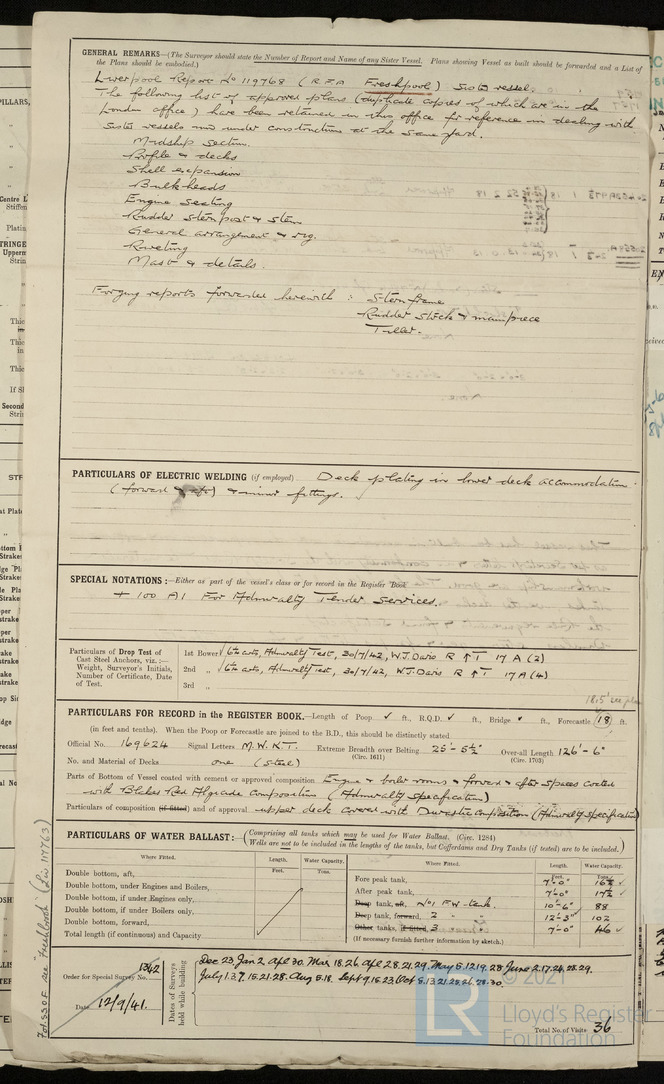 GENERAL REMARKS—(The Surveyor should state the Number of Report and Name of any Sister Vessel. Plans showing Vessel as built should be forwarded and a List of
the Plans should be embodied.)
Liverpool Report No 119768 (R.F.A Freshpool) Sister vessel.
The following list of approved plans (duplicate copies of which are in the
London office) have been retained in this office for reference in dealing with
sister vessels now under construction at the same yard.
Midship section.
Profile & decks
Shell expansion
Bulkheads
Engine Seating
Rudder Sternpost & Stem
General arrangement & rig.
Riveting
Mast & details.
Forging reports forwarded herewith : Sternframe
Rudder Stock & mainpiece
Tiller.
PARTICULARS OF ELECTRIC WELDING (if employed) Deck plating in lower deck accommodation
(forward & aft) & minor fittings.
SPECIAL NOTATIONS:—Either as part of the vessel's class or for record in the Register Book
+ 100 A1 For Admiralty Tender Services.
Particulars of Drop Test of
Cast Steel Anchors, viz.:—
Weight, Surveyor's Initials,
Number of Certificate, Date
of Test.
1st Bower 6¼ cwts, Admiralty Test, 30/7/42, W.J. Davis R ↑ T 17 A (2)
2nd „ 6¼ cwts, Admiralty Test, 30/7/42, W.J. Davis R ↑ T 17 A (4)
3rd „
18.5' see plan
PARTICULARS FOR RECORD in the REGISTER BOOK.—Length of Poop ✓ ft., R.Q.D. ✓ ft., Bridge ✓ ft., Forecastle (18) ft.
(in feet and tenths). When the Poop or Forecastle are joined to the B.D., this should be distinctly stated.
Official No. 169624 Signal Letters M.W.K.T. Extreme Breadth over Belting 25'-5½" Over-all Length 126'-6"
(Circ. 1611) (Circ. 1703)
No. and Material of Decks one (steel)
Parts of Bottom of Vessel coated with cement or approved composition Engine & boiler rooms & forward & after spaces coated
with Blakes Red Algicide Composition (Admiralty Specification)
Particulars of composition (if fitted) and of approval upper deck covered with Durastic Composition (Admiralty Specification)
PARTICULARS OF WATER BALLAST:—(Comprising all tanks which may be used for Water Ballast, (Circ. 1284)
Wells are not to be included in the lengths of the tanks, but Cofferdams and Dry Tanks (if tested) are to be included.)
Where Fitted. Length. Water Capacity.
Feet. Tons.
Double bottom, aft,
Double bottom, under Engines and Boilers,
Double bottom, if under Engines only,
Double bottom, if under Boilers only,
Double bottom, forward,
Total length (if continuous) and Capacity
Where Fitted. Length. Water Capacity.
Feet. Tons.
Fore peak tank, 7'-0" 16½ ✓
After peak tank, 7'-0" 17½ ✓
Deep tank, aft, No1 F.W. tank. 10'-6" 88
Deep tank, forward, 2 " " 12'-3" 102
Other tanks, if fitted 3 " " 7'-0" 46 ✓
(If necessary furnish further information by sketch.)
Order for Special Survey No. 1342
Date 12/9/41.
Dates of Surveys
held while building
Dec 23. Jan 2. Apl 30. Mar 18.26. Apl 28.21.29. May 5.12.19.28. June 2.17.24.28.29.
July 1.3.9.15.21.28. Aug 5.18. Sept 9.15.23. Oct 5.13.21.25.26.28.30.
Total No. of Visits 36
© 2021
LR
Lloyd's Register
Foundation